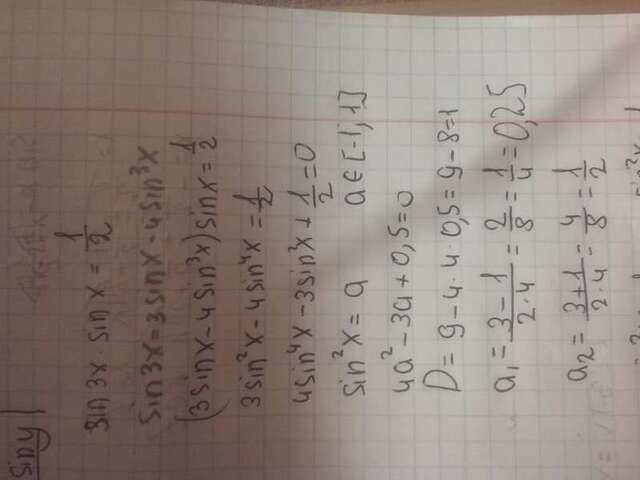 sin y
sin 3x · sin x = 1/2
sin3x = 3sinx - 4sin³x
(3sinx - 4sin³x) sinx = 1/2
3sin²x - 4sin⁴x = 1/2
4sin⁴x - 3sin²x + 1/2 = 0
sin²x = a a∈[-1; 1]
4a² - 3a + 0,5 = 0
D = 9 - 4·4·0,5 = 9 - 8 = 1
a₁ = (3 - 1)/(2·4) = 2/8 = 1/4 = 0,25
a₂ = (3 + 1)/(2·4) = 4/8 = 1/2